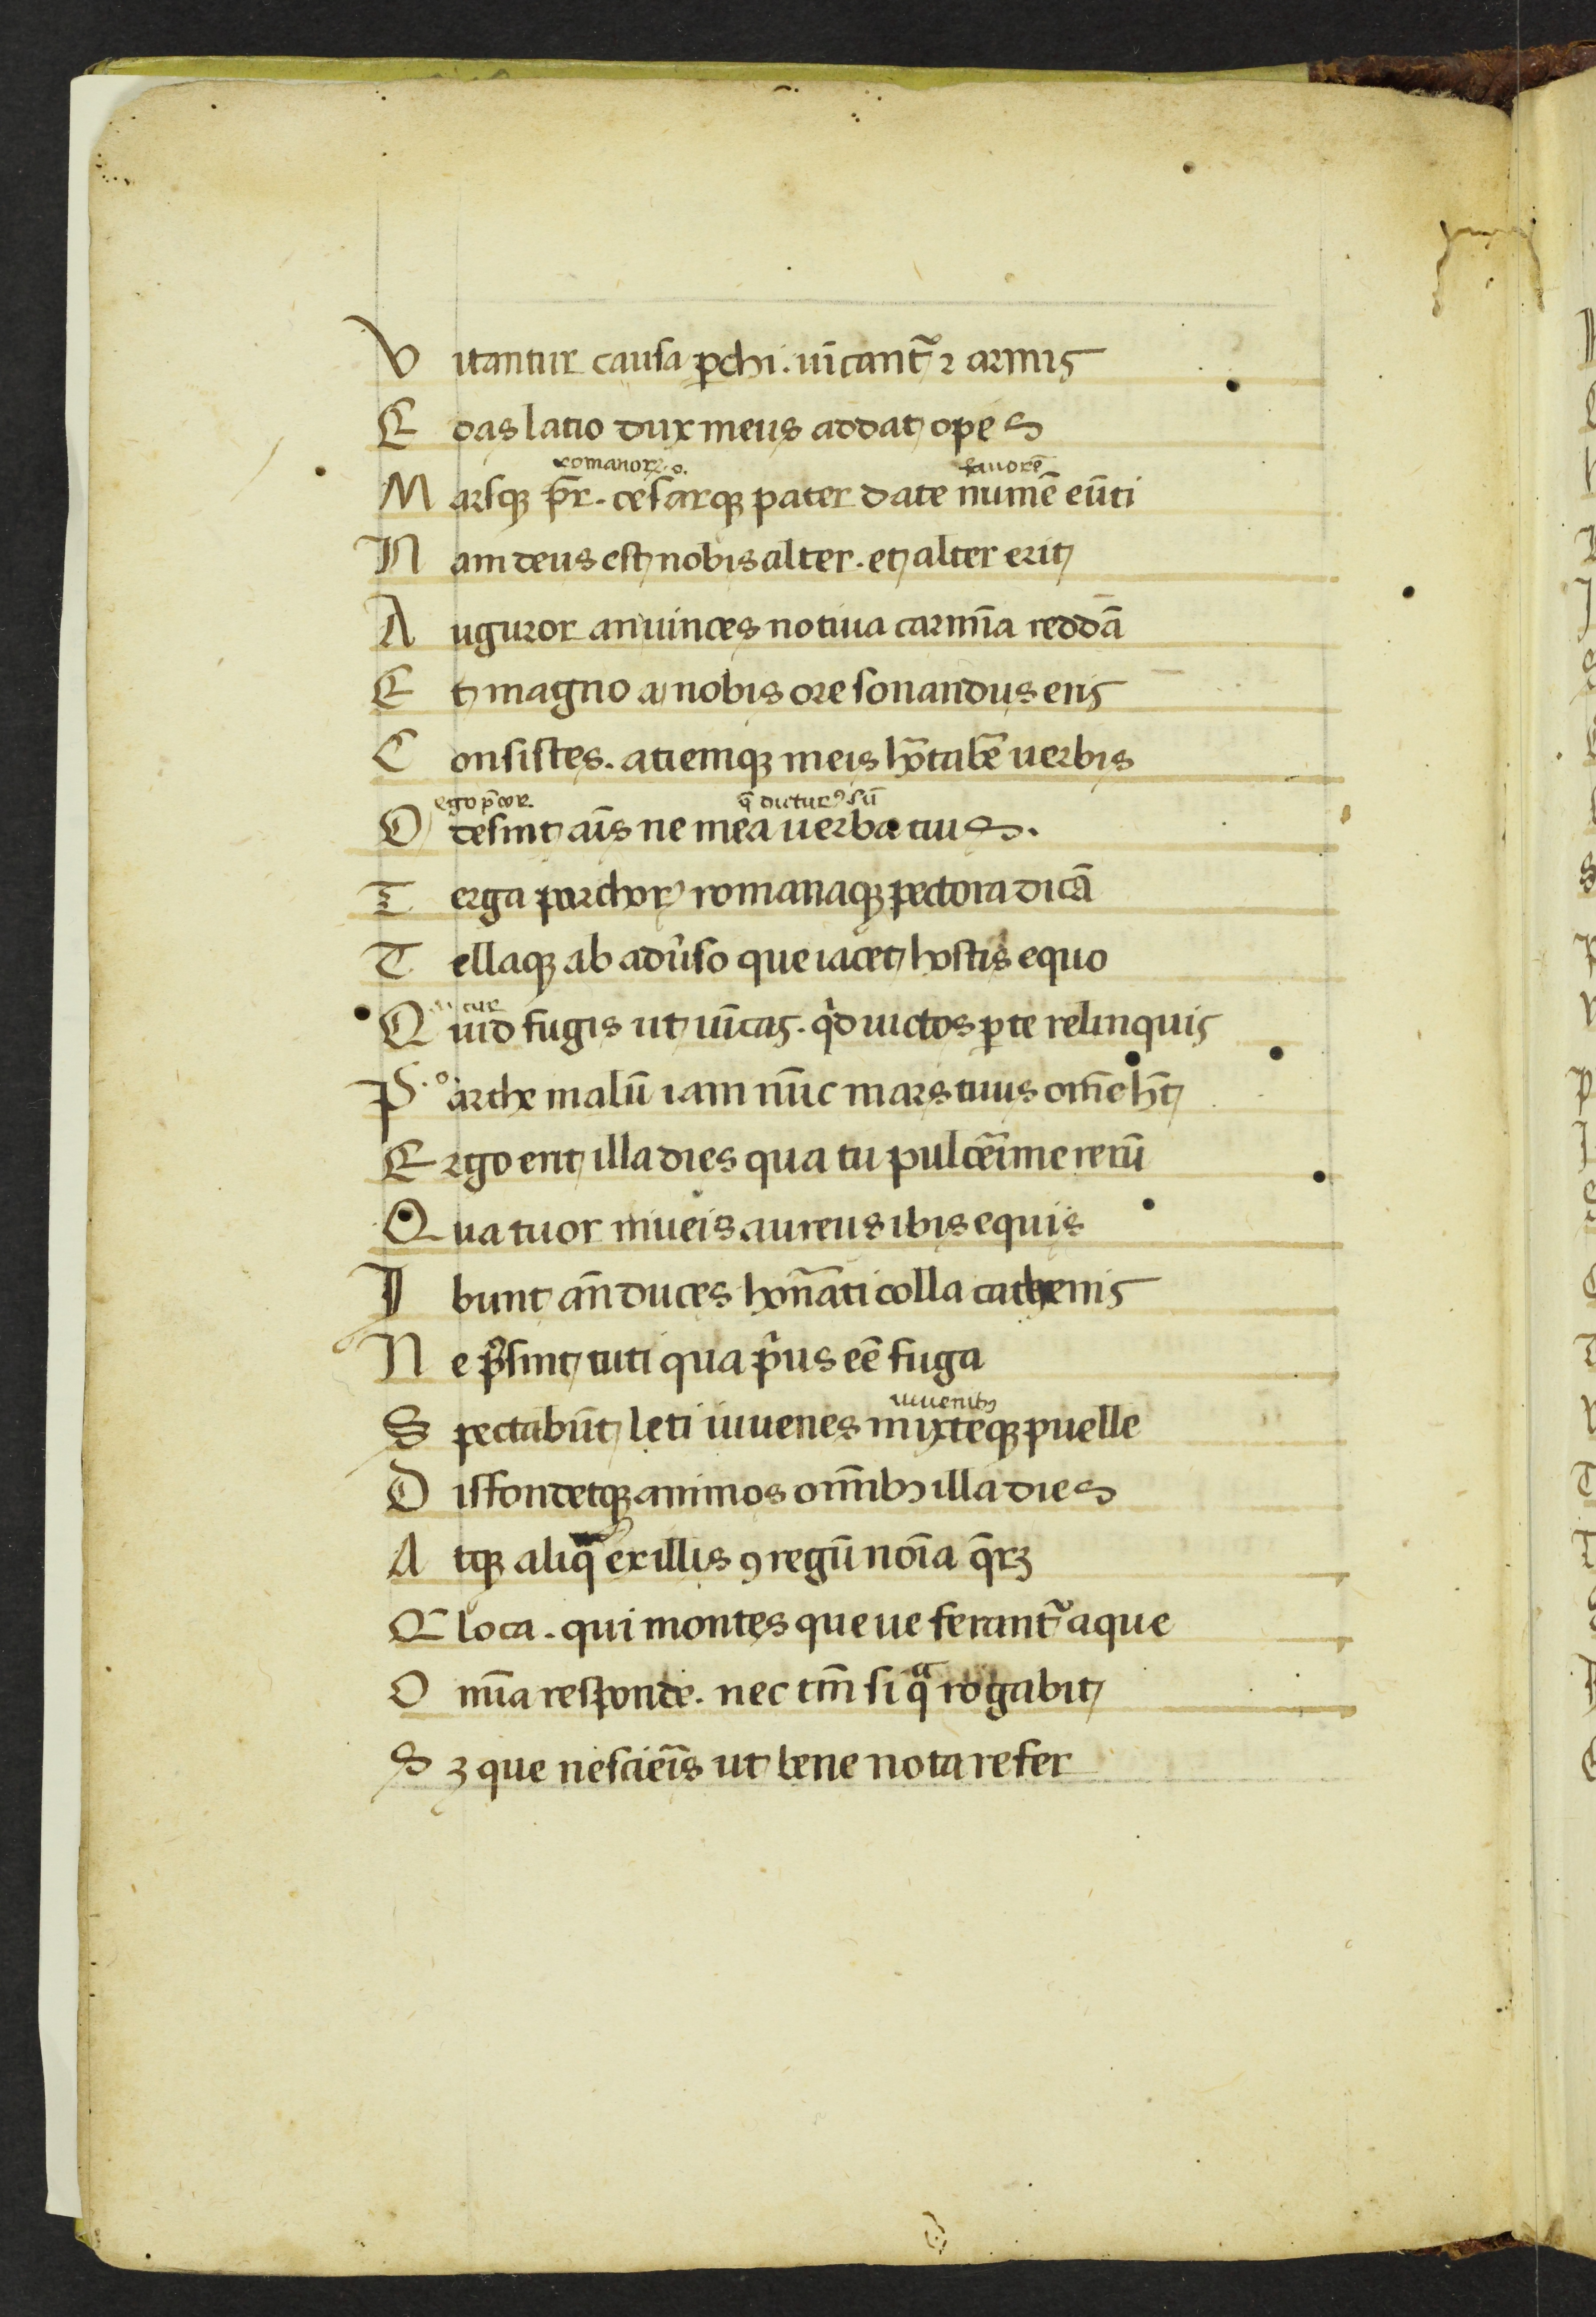 V itantur causa ꝑchi. uīcantᷣ ⁊ armis
E oas latio dux meus addat opes
romanoꝝ .o. fauorē
M arsqꝫ pr̄. cesarqꝫ pater date numē eūti
N am deus est nobis alter. et alter erit
A uguror an uinces notiua carmīa reddā
E t magno a nobis ore sonandus eris
C onsistes. atiemqꝫ meis hortabē uerbis
ego p̄cor. q̄ dicturꝰ sū
O desint aīs ne mea uerba tuis.
T erga parthoꝝ romanaqꝫ pectora dicā
T ellaqꝫ ab adūso que iacet hostis equo
cur
Q uid fugis ut uīcas. qͥd uictos ꝑ te relinquis
P arthe malū iam nūc mars tuus om̄e h̄t
E rgo erit illa dies qua tu pulcerīme rerū
Q uatuor niueis aureus ibis equis
I bunt an̄ duces honᷓati colla cathenis
N e p̄sint tuti qua pͥus eē fuga
iuuenibꝫ
S pectabūt leti iuuenes mixteqꝫ puelle
D isfondetqꝫ animos om̄ibꝫ illa dies
A tqꝫ aliq̄ ex illis ꝯ regū noīa q̄rꝫ
Q loca. qui montes que ue ferantᷣ aque
O mīa responde. nec tm̄ si qͣ rogabit
S ꝫ que nescieīs ut bene nota refer